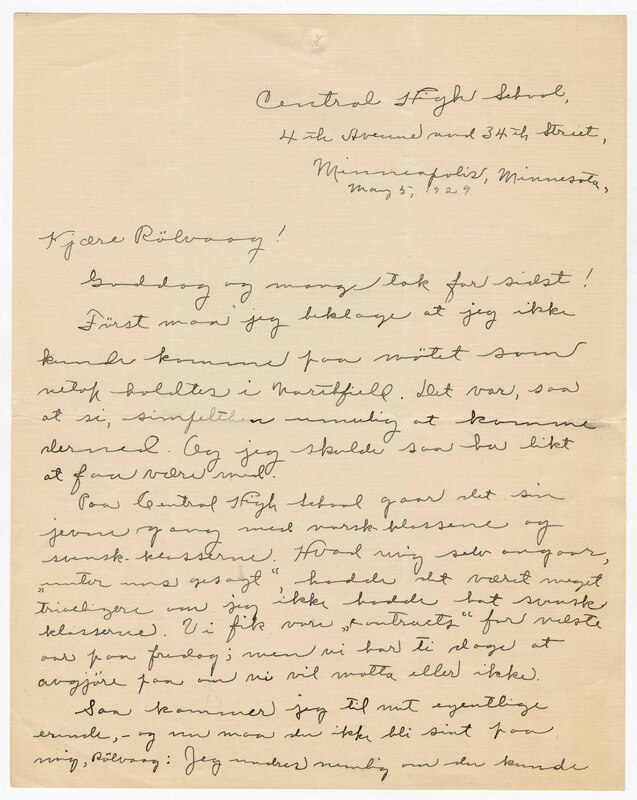 Central High School,
4th Avenue and 34th Street,
Minneapolis, Minnesota,
May 5, 1929
Kjære Rölvaag!
Goddag og mange tak for sidst!
Först maa jeg beklage at jeg ikke
kunde komme paa mötet som
netop holdtes i Northfield. Det var, saa
at si, simpelthen umulig at komme
derned. Og jeg skulde saa ha likt
at faa være med.
Paa Central High School gaar det sin
jevne gang med norsk-klassene og
svensk-klasserne. Hvad mig selv angaar,
„unter uns gesagt“, hadde det været meget
triveligere om jeg ikke hadde hat svensk
klasserne. Vi fik vore „contracts“ for næste
aar paa fredag; men vi har ti dage at
avgjöre paa om vi vil motta eller ikke.
Saa kommer jeg til mit egentlige
erinde, - og nu maa du ikke bli sint paa
mig, Rölvaag: Jeg undres nemlig om du kunde